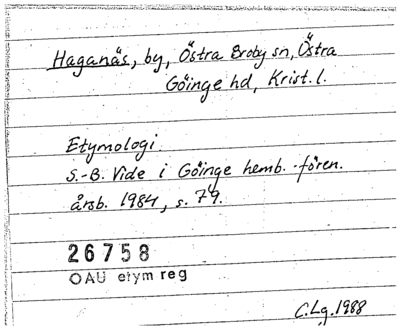 Haganäs, by, Östra Broby sn, Östra
Göinge hd, Krist. l.
Etymologi.
S.-B. Vide i Göinge hemb.-fören.
årsb. 1984, s. 79.
26758
OAU etym reg
C.Lg. 1988